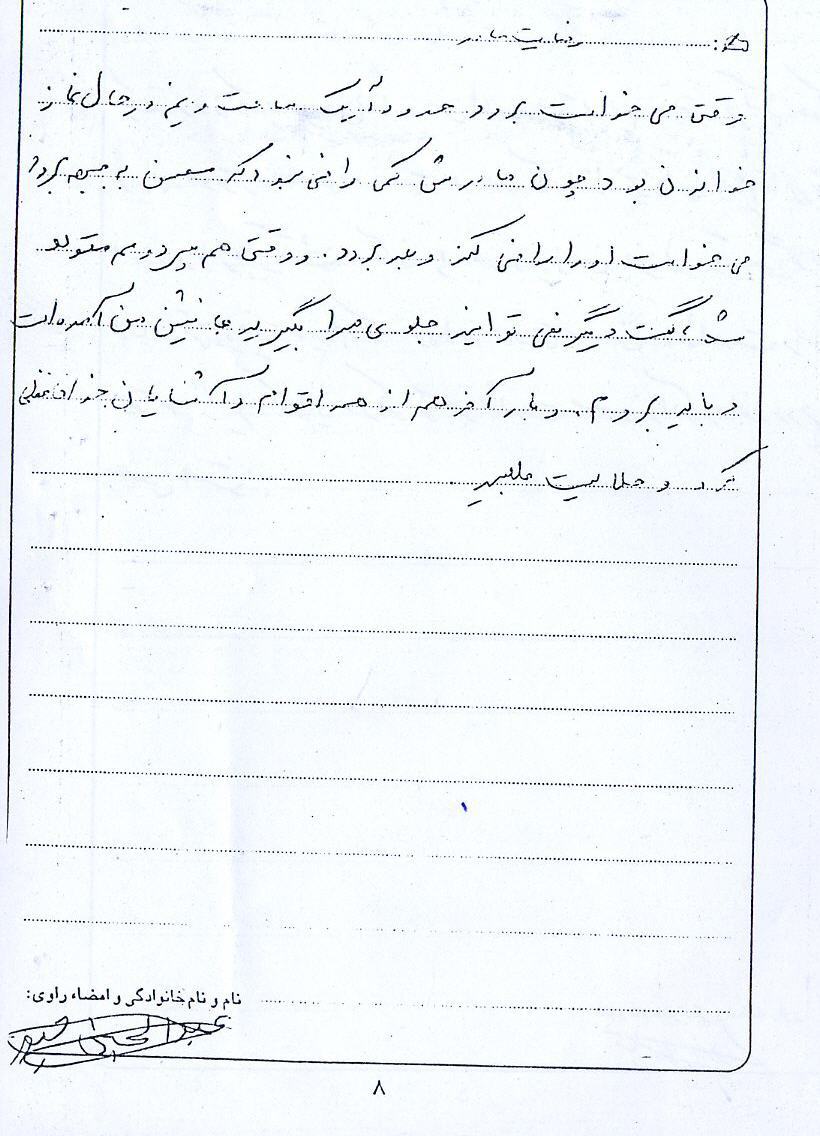 رضایت مادر
وقتی می خواست برود حدوداً یک ساعت و نیم در حال نماز
خواندن بود چون مادرش کمی راضی نبود که به جبهه برود
می خواست او را راضی کند و بعد برود. و وقتی هم پسر دومم متولد
شد، گفت دیگر نمی توانید جلوی مرا بگیرید جانشین من آمده است
و باید بروم. و بار آخر هم از همه اقوام و آشنایان خداحافظی
کرد و حلالیت طلبید.
نام و نام خانوادگی و امضاء راوی:
۸